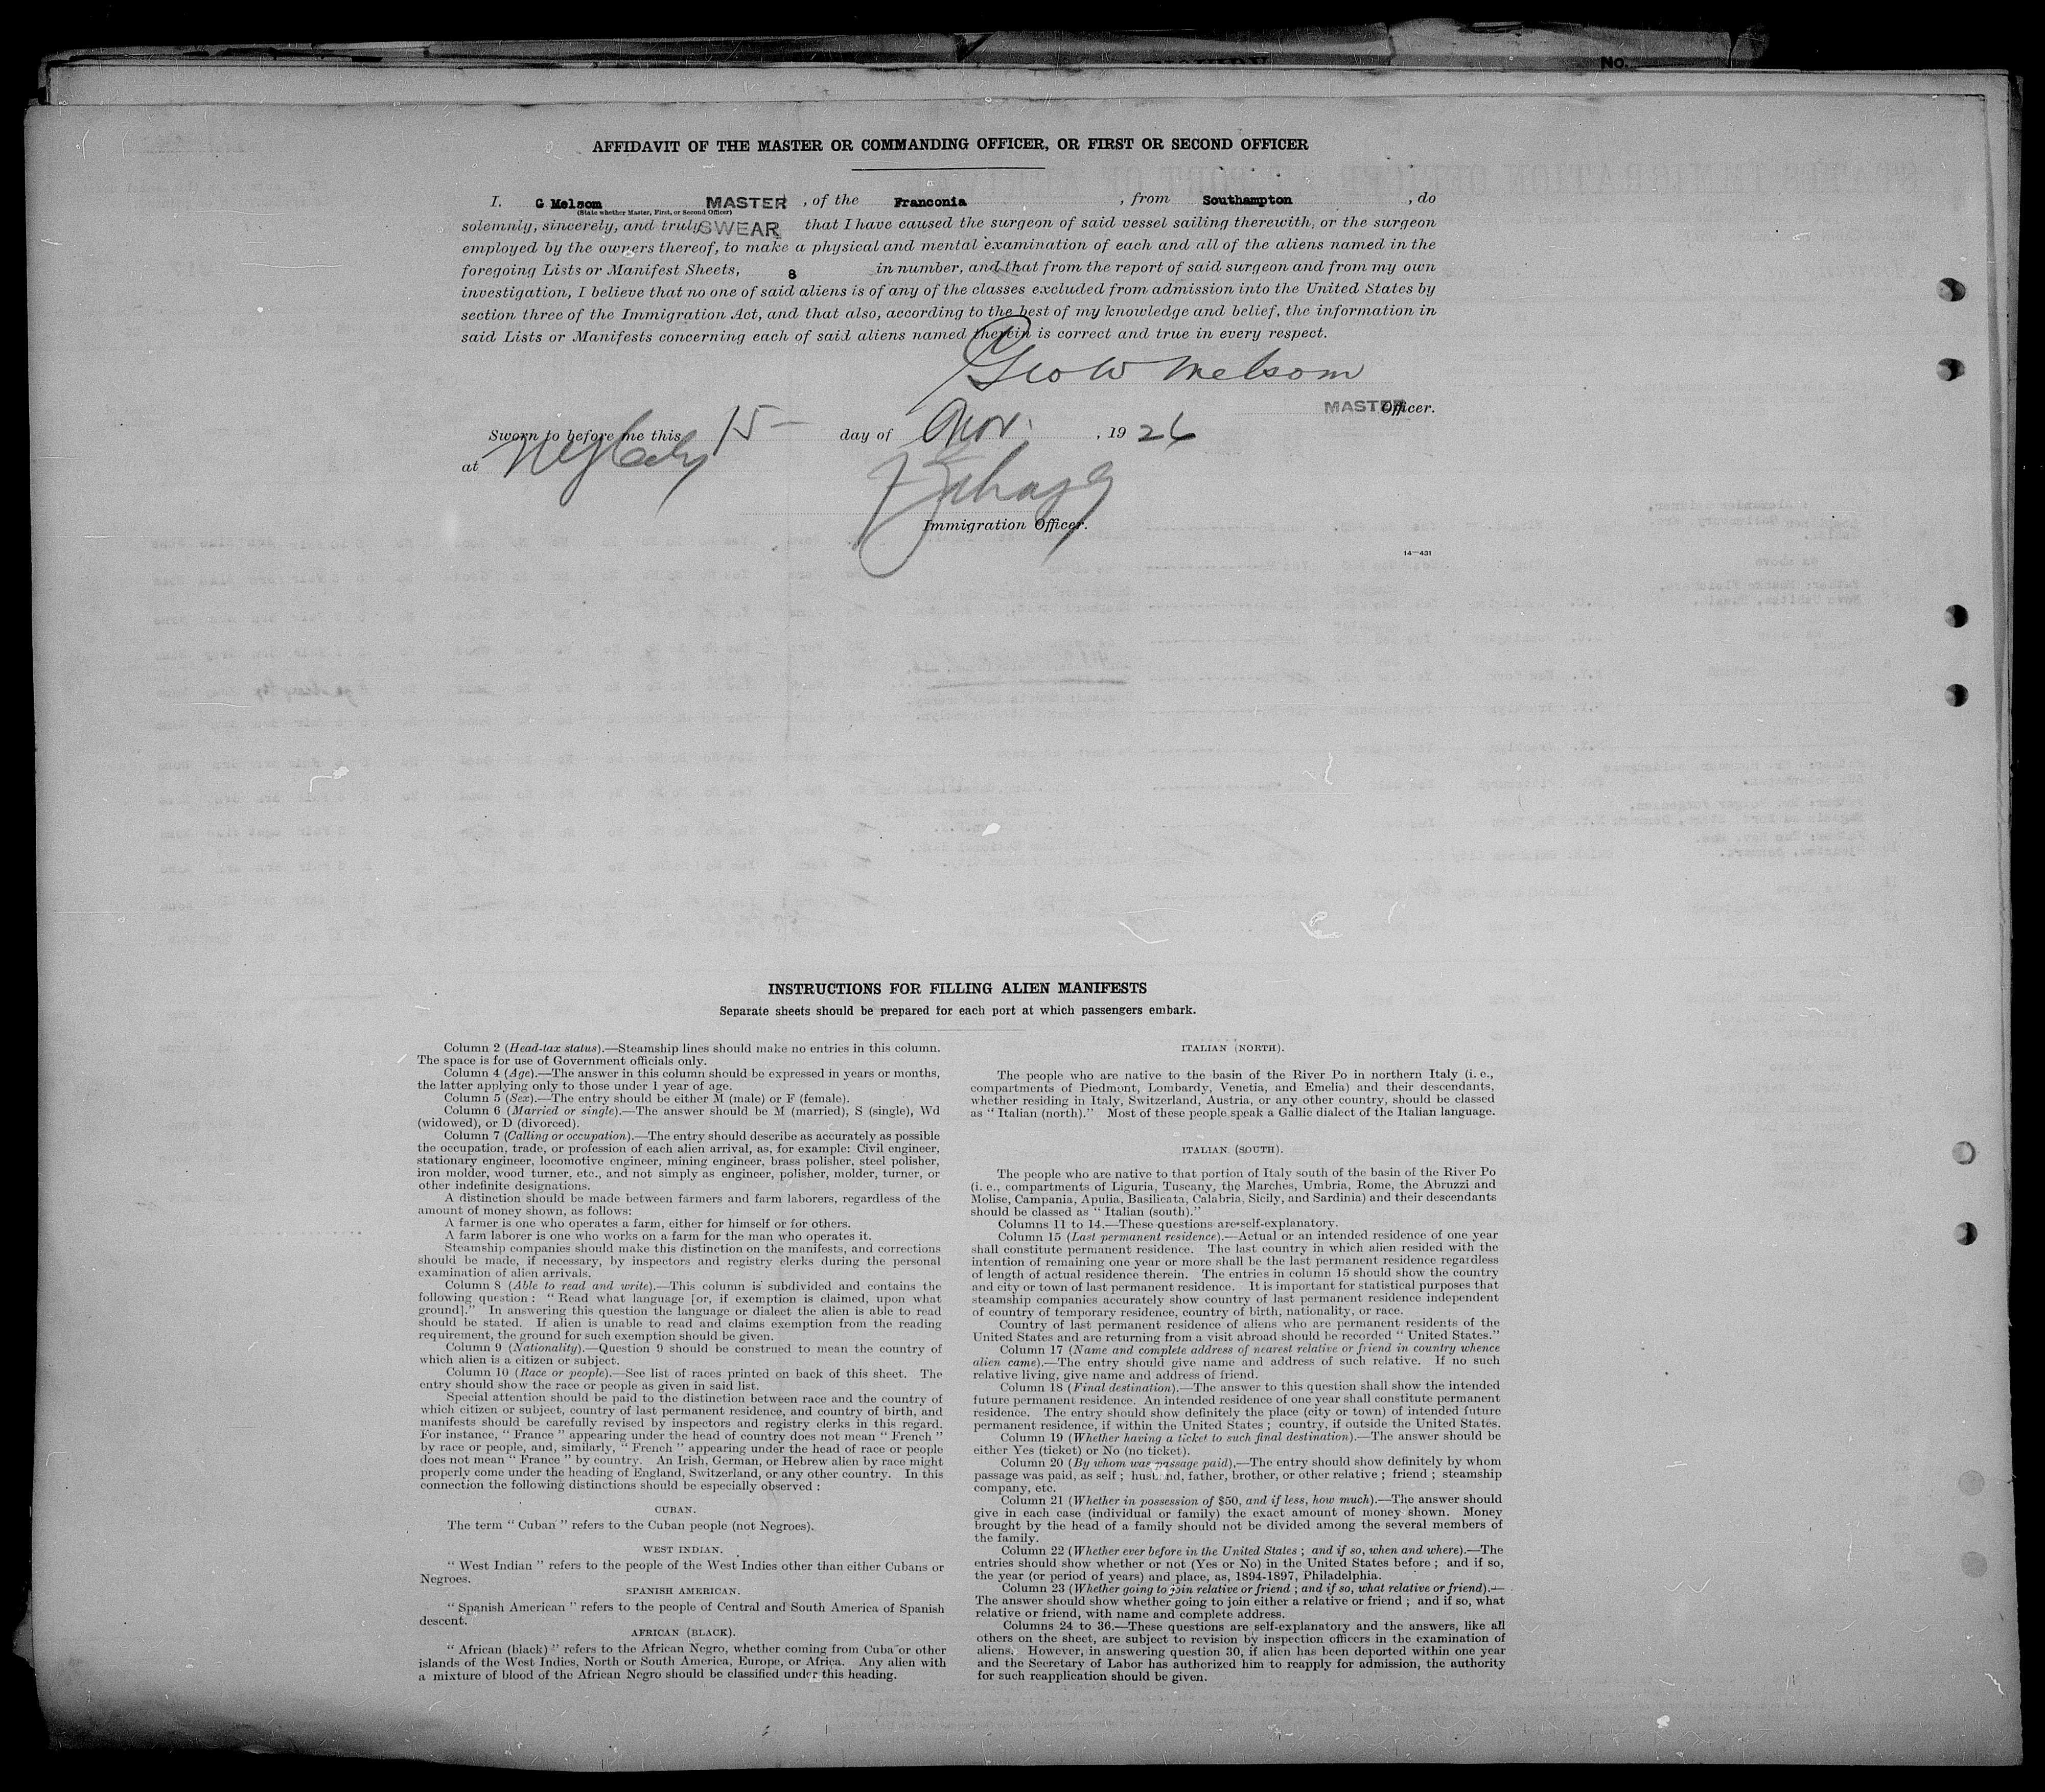 No.
AFFIDAVIT OF THE MASTER OR COMMANDING OFFICER, OR FIRST OR SECOND OFFICER
I, G Melsom MASTER , of the Franconia , from Southampton , do
(State whether Master, First, or Second Officer)
solemnly, sincerely, and truly SWEAR that I have caused the surgeon of said vessel sailing therewith, or the surgeon
employed by the owners thereof, to make a physical and mental examination of each and all of the aliens named in the
foregoing Lists or Manifest Sheets, 8 in number, and that from the report of said surgeon and from my own
investigation, I believe that no one of said aliens is of any of the classes excluded from admission into the United States by
section three of the Immigration Act, and that also, according to the best of my knowledge and belief, the information in
said Lists or Manifests concerning each of said aliens named therein is correct and true in every respect.
Geo W Melsom
MASTER Officer.
Sworn to before me this 15 – day of Nov. , 19 26
at
Immigration Officer.
14—431
INSTRUCTIONS FOR FILLING ALIEN MANIFESTS
Separate sheets should be prepared for each port at which passengers embark.
Column 2 (Head-tax status).—Steamship lines should make no entries in this column.
The space is for use of Government officials only.
Column 4 (Age).—The answer in this column should be expressed in years or months,
the latter applying only to those under 1 year of age.
Column 5 (Sex).—The entry should be either M (male) or F (female).
Column 6 (Married or single).—The answer should be M (married), S (single), Wd
(widowed), or D (divorced).
Column 7 (Calling or occupation).—The entry should describe as accurately as possible
the occupation, trade, or profession of each alien arrival, as, for example: Civil engineer,
stationary engineer, locomotive engineer, mining engineer, brass polisher, steel polisher,
iron molder, wood turner, etc., and not simply as engineer, polisher, molder, turner, or
other indefinite designations.
A distinction should be made between farmers and farm laborers, regardless of the
amount of money shown, as follows:
A farmer is one who operates a farm, either for himself or for others.
A farm laborer is one who works on a farm for the man who operates it.
Steamship companies should make this distinction on the manifests, and corrections
should be made, if necessary, by inspectors and registry clerks during the personal
examination of alien arrivals.
Column 8 (Able to read and write).—This column is subdivided and contains the
following question: “ Read what language [or, if exemption is claimed, upon what
ground].” In answering this question the language or dialect the alien is able to read
should be stated. If alien is unable to read and claims exemption from the reading
requirement, the ground for such exemption should be given.
Column 9 (Nationality).—Question 9 should be construed to mean the country of
which alien is a citizen or subject.
Column 10 (Race or people).—See list of races printed on back of this sheet. The
entry should show the race or people as given in said list.
Special attention should be paid to the distinction between race and the country of
which citizen or subject, country of last permanent residence, and country of birth, and
manifests should be carefully revised by inspectors and registry clerks in this regard.
For instance, “ France ” appearing under the head of country does not mean “ French ”
by race or people, and, similarly, “ French ” appearing under the head of race or people
does not mean “ France ” by country. An Irish, German, or Hebrew alien by race might
properly come under the heading of England, Switzerland, or any other country. In this
connection the following distinctions should be especially observed :
CUBAN.
The term “ Cuban ” refers to the Cuban people (not Negroes).
WEST INDIAN.
“ West Indian ” refers to the people of the West Indies other than either Cubans or
Negroes.
SPANISH AMERICAN.
“ Spanish American ” refers to the people of Central and South America of Spanish
descent.
AFRICAN (BLACK).
“ African (black) ” refers to the African Negro, whether coming from Cuba or other
islands of the West Indies, North or South America, Europe, or Africa. Any alien with
a mixture of blood of the African Negro should be classified under this heading.
ITALIAN (NORTH).
The people who are native to the basin of the River Po in northern Italy (i. e.,
compartments of Piedmont, Lombardy, Venetia, and Emelia) and their descendants,
whether residing in Italy, Switzerland, Austria, or any other country, should be classed
as “ Italian (north).” Most of these people speak a Gallic dialect of the Italian language.
ITALIAN (SOUTH).
The people who are native to that portion of Italy south of the basin of the River Po
(i. e., compartments of Liguria, Tuscany, the Marches, Umbria, Rome, the Abruzzi and
Molise, Campania, Apulia, Basilicata, Calabria, Sicily, and Sardinia) and their descendants
should be classed as “ Italian (south).”
Columns 11 to 14.—These questions are self-explanatory.
Column 15 (Last permanent residence).—Actual or an intended residence of one year
shall constitute permanent residence. The last country in which alien resided with the
intention of remaining one year or more shall be the last permanent residence regardless
of length of actual residence therein. The entries in column 15 should show the country
and city or town of last permanent residence. It is important for statistical purposes that
steamship companies accurately show country of last permanent residence independent
of country of temporary residence, country of birth, nationality, or race.
Country of last permanent residence of aliens who are permanent residents of the
United States and are returning from a visit abroad should be recorded “ United States.”
Column 17 (Name and complete address of nearest relative or friend in country whence
alien came).—The entry should give name and address of such relative. If no such
relative living, give name and address of friend.
Column 18 (Final destination).—The answer to this question shall show the intended
future permanent residence. An intended residence of one year shall constitute permanent
residence. The entry should show definitely the place (city or town) of intended future
permanent residence, if within the United States ; country, if outside the United States.
Column 19 (Whether having a ticket to such final destination).—The answer should be
either Yes (ticket) or No (no ticket).
Column 20 (By whom was passage paid).—The entry should show definitely by whom
passage was paid, as self ; husband, father, brother, or other relative ; friend ; steamship
company, etc.
Column 21 (Whether in possession of $50, and if less, how much).—The answer should
give in each case (individual or family) the exact amount of money shown. Money
brought by the head of a family should not be divided among the several members of
the family.
Column 22 (Whether ever before in the United States ; and if so, when and where).—The
entries should show whether or not (Yes or No) in the United States before ; and if so,
the year (or period of years) and place, as, 1894-1897, Philadelphia.
Column 23 (Whether going to join relative or friend ; and if so, what relative or friend).—
The answer should show whether going to join either a relative or friend ; and if so, what
relative or friend, with name and complete address.
Columns 24 to 36.—These questions are self-explanatory and the answers, like all
others on the sheet, are subject to revision by inspection officers in the examination of
aliens. However, in answering question 30, if alien has been deported within one year
and the Secretary of Labor has authorized him to reapply for admission, the authority
for such reapplication should be given.